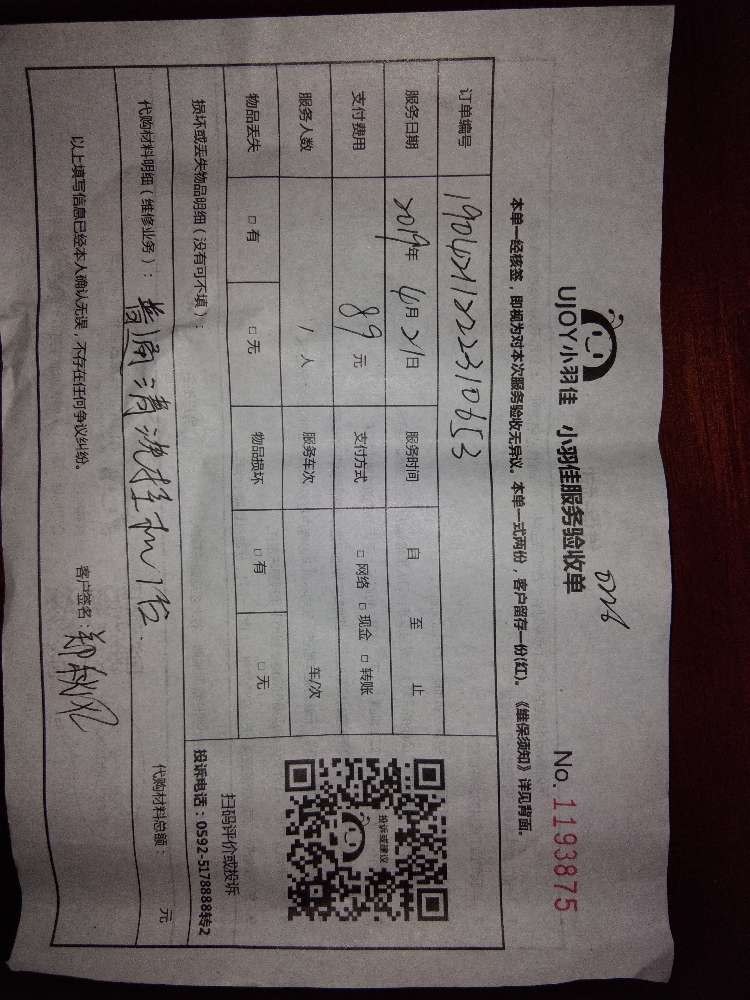 0776
UJOY小羽佳 小羽佳服务验收单 No. 1193875
本单一经核签，即视为对本次服务验收无异议。本单一式两份，客户留存一份(红)。《维保须知》详见背面。
订单编号 190421122310653
服务日期 2019年 4月 21日 服务时间 自 至 止
支付费用 89 元 支付方式 □ 网络 □ 现金 □ 转账
服务人数 1 人 服务车次 车/次
物品丢失 □ 有 □ 无 物品损坏 □ 有 □ 无
投诉或建议
扫码评价或投诉
投诉电话：0592-5178888转2
损坏或丢失物品明细（没有可不填）：
代购材料明细（维修业务）： 普通清洗挂机1台. 代购材料总额： 元
以上填写信息已经本人确认无误，不存在任何争议纠纷。 客户签名：郑秋风